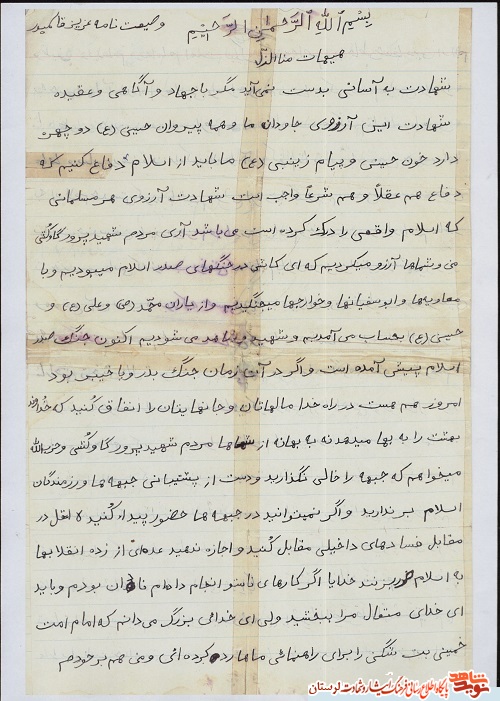 وصیت نامه عزیز
بسم الله الرحمن الرحیم
هیهات منا الذله
شهادت به آسانی بدست نمی‌آید مگر با جهاد و آگاهی و عقیده
شهادت این آرزوی جاودان ما و همه پیروان حسینی (ع) دو چهره
دارد خون حسینی و پیام زینبی (ع) ما باید از اسلام دفاع کنیم که
دفاع هم عقلاً و هم شرعاً واجب است شهادت آرزوی هر مسلمانی
که اسلام واقعی را درک کرده است می‌باشد آری مردم شهید پرور گاوکشی
من و شماها آرزو میکردیم که ای کاش در جنگهای صدر اسلام میبودیم و با
معاویه‌ها و ابوسفیانها و خوارجها میجنگیدیم و از یاران محمد (ص) و علی (ع) و
حسین (ع) بحساب می‌آمدیم و شهید و شاهد می‌شودیم اکنون جنگ صدر
اسلام پیش آمده است و اگر در آن زمان جنگ بدر و یا خیبر بود
امروز هم هست در راه خدا مالهاتان و جانهایتان را انفاق کنید که خداوند
بهشت را به بها میدهد نه به بهانه از شماها مردم شهید پرور گاوکشی و حزب الله
میخواهم که جبهه را خالی نگذارید و دست از پشتیبانی جبهه ها و رزمندگان
اسلام بر ندارید و اگر نمیتوانید در جبهه ها حضور پیدا کنید لااقل در
مقابل فسادهای داخیلی مقابل کنید و اجازه ندهید عده‌ای از زده انقلابها
به اسلام ضربه بزنند خدایا اگر کارهای ناشتو انجام دادام نادان بودم و باید
ای خدای متعال مرا ببخشید ولی ای خدا می بزرگ می‌دانم که امام امت
خمینی بت شکن را برای راهنمائی ماها رد کرده‌ائی و من هم بر خودم
نوید شاهد
پایگاه اطلاع رسانی فرهنگ ایثار و شهادت لرستان